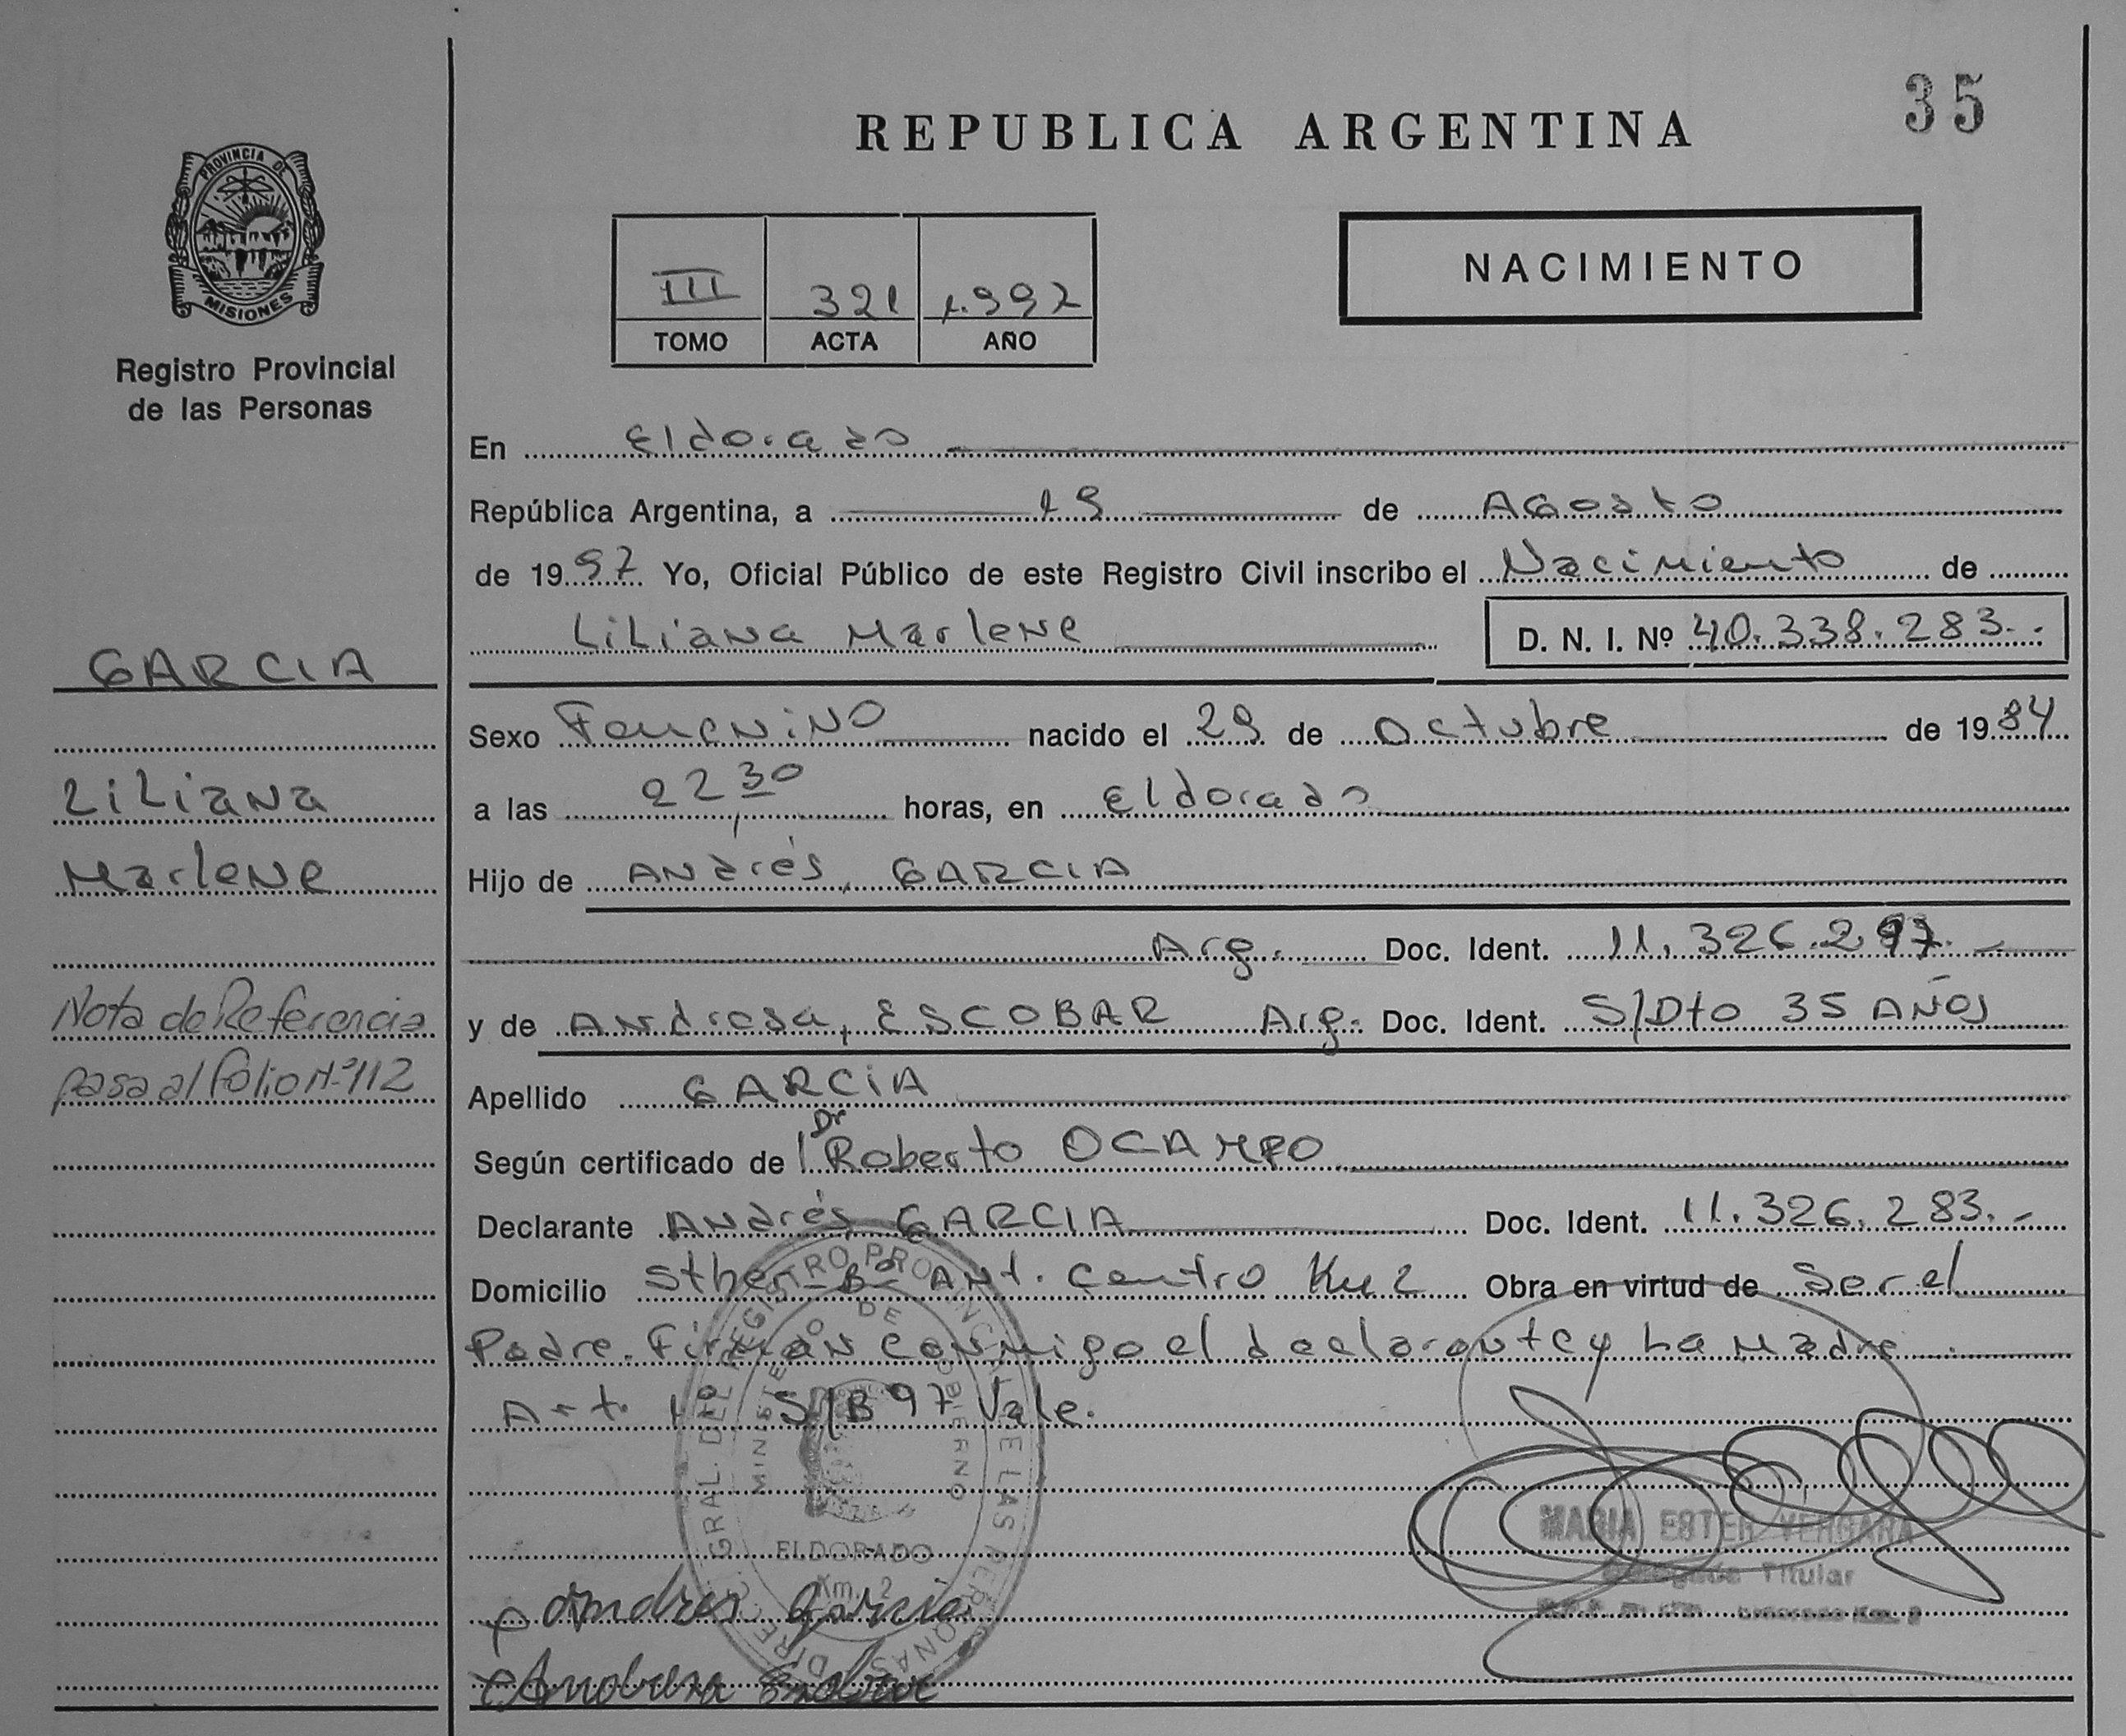 35
REPUBLICA ARGENTINA
PROVINCIA DE
MISIONES
Registro Provincial
de las Personas
III 321 1.997
TOMO ACTA AÑO
NACIMIENTO
En Eldorado
República Argentina, a 19 de Agosto
de 1997 Yo, Oficial Público de este Registro Civil inscribo el Nacimiento de
Liliana Marlene D. N. I. Nº 40.338.283.-
GARCIA
Liliana
Marlene
Nota de Referencia
pasa al folio Nº 112
Sexo Femenino nacido el 29 de Octubre de 1984
a las 22,30 horas, en Eldorado
Hijo de Andrés, GARCIA
Arg. Doc. Ident. 11.326.297.-
y de Andresa, ESCOBAR Arg. Doc. Ident. S/Dto 35 AÑOS
Apellido GARCIA
Según certificado de Dr Roberto OCAMPO
Declarante Andrés GARCIA Doc. Ident. 11.326.283.-
Domicilio Bº Ant. Centro Km 2 Obra en virtud de Ser el
Padre. Firman conmigo el declarante y La Madre.
Art. S/B 97 Vale.
DIREC. GRAL. DEL REGISTRO PROVINCIAL DE LAS PERSONAS
MINISTERIO DE GOBIERNO
ELDORADO
Km. 2
MARIA ESTER VERGARA
Delegada Titular
Andres Garcia